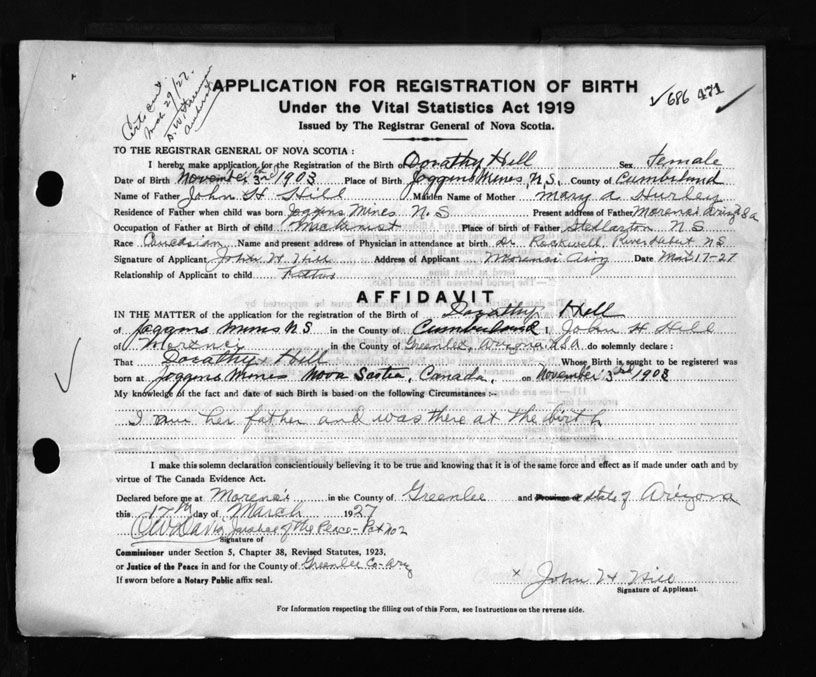 Certs
June 29/27.
APPLICATION FOR REGISTRATION OF BIRTH
686 471
Under the Vital Statistics Act 1919
Issued by The Registrar General of Nova Scotia.
TO THE REGISTRAR GENERAL OF NOVA SCOTIA :
I hereby make application for the Registration of the Birth of Dorathy Hill Sex Female
Date of Birth November 3rd 1903 Place of Birth Joggins Mines, N.S. County of Cumberland
Name of Father John H Hill Maiden Name of Mother Mary A Hurley
Residence of Father when child was born Joggins Mines N.S Present address of Father Morenci
Occupation of Father at Birth of child Machinist Place of birth of Father Stellarton N.S
Race Caucasian Name and present address of Physician in attendance at birth dr Rockwell, Riverhebert N.S.
Signature of Applicant John H Hill Address of Applicant Morenci Ariz Date Mar 17-27
Relationship of Applicant to child Father
AFFIDAVIT
IN THE MATTER of the application for the registration of the Birth of Dorathy Hill
of Joggins Mines N.S in the County of Cumberland I, John H Hill
of Morenci in the County of Greenlee, Arizona U.S.A do solemnly declare :
That Dorathy Hill Whose Birth is sought to be registered was
born at Joggins Mines Nova Scotia, Canada, on November 3rd 1903
My knowledge of the fact and date of such Birth is based on the following Circumstances :-
I am her father and was there at the birth
I make this solemn declaration conscientiously believing it to be true and knowing that it is of the same force and effect as if made under oath and by
virtue of The Canada Evidence Act.
Declared before me at Morenci in the County of Greenlee and Province of State of Arizona
this 17th day of March 1927
Justice of the Peace - Pct No 2
Signature of
Commissioner under Section 5, Chapter 38, Revised Statutes, 1923,
or Justice of the Peace in and for the County of Greenlee Co-Ariz
If sworn before a Notary Public affix seal.
x John H Hill
Signature of Applicant.
For Information respecting the filling out of this Form, see Instructions on the reverse side.